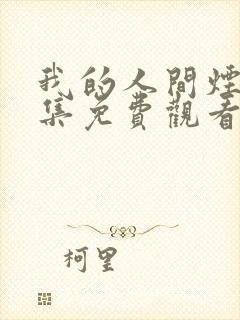 我的人間煙
集免費觀看
柯里